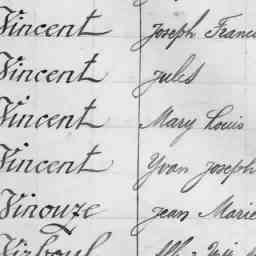 Vincent Joseph Franci
Vincent Jules
Vincent Mary Louis
Vincent Yvan Joseph
Vinouze Jean Marie